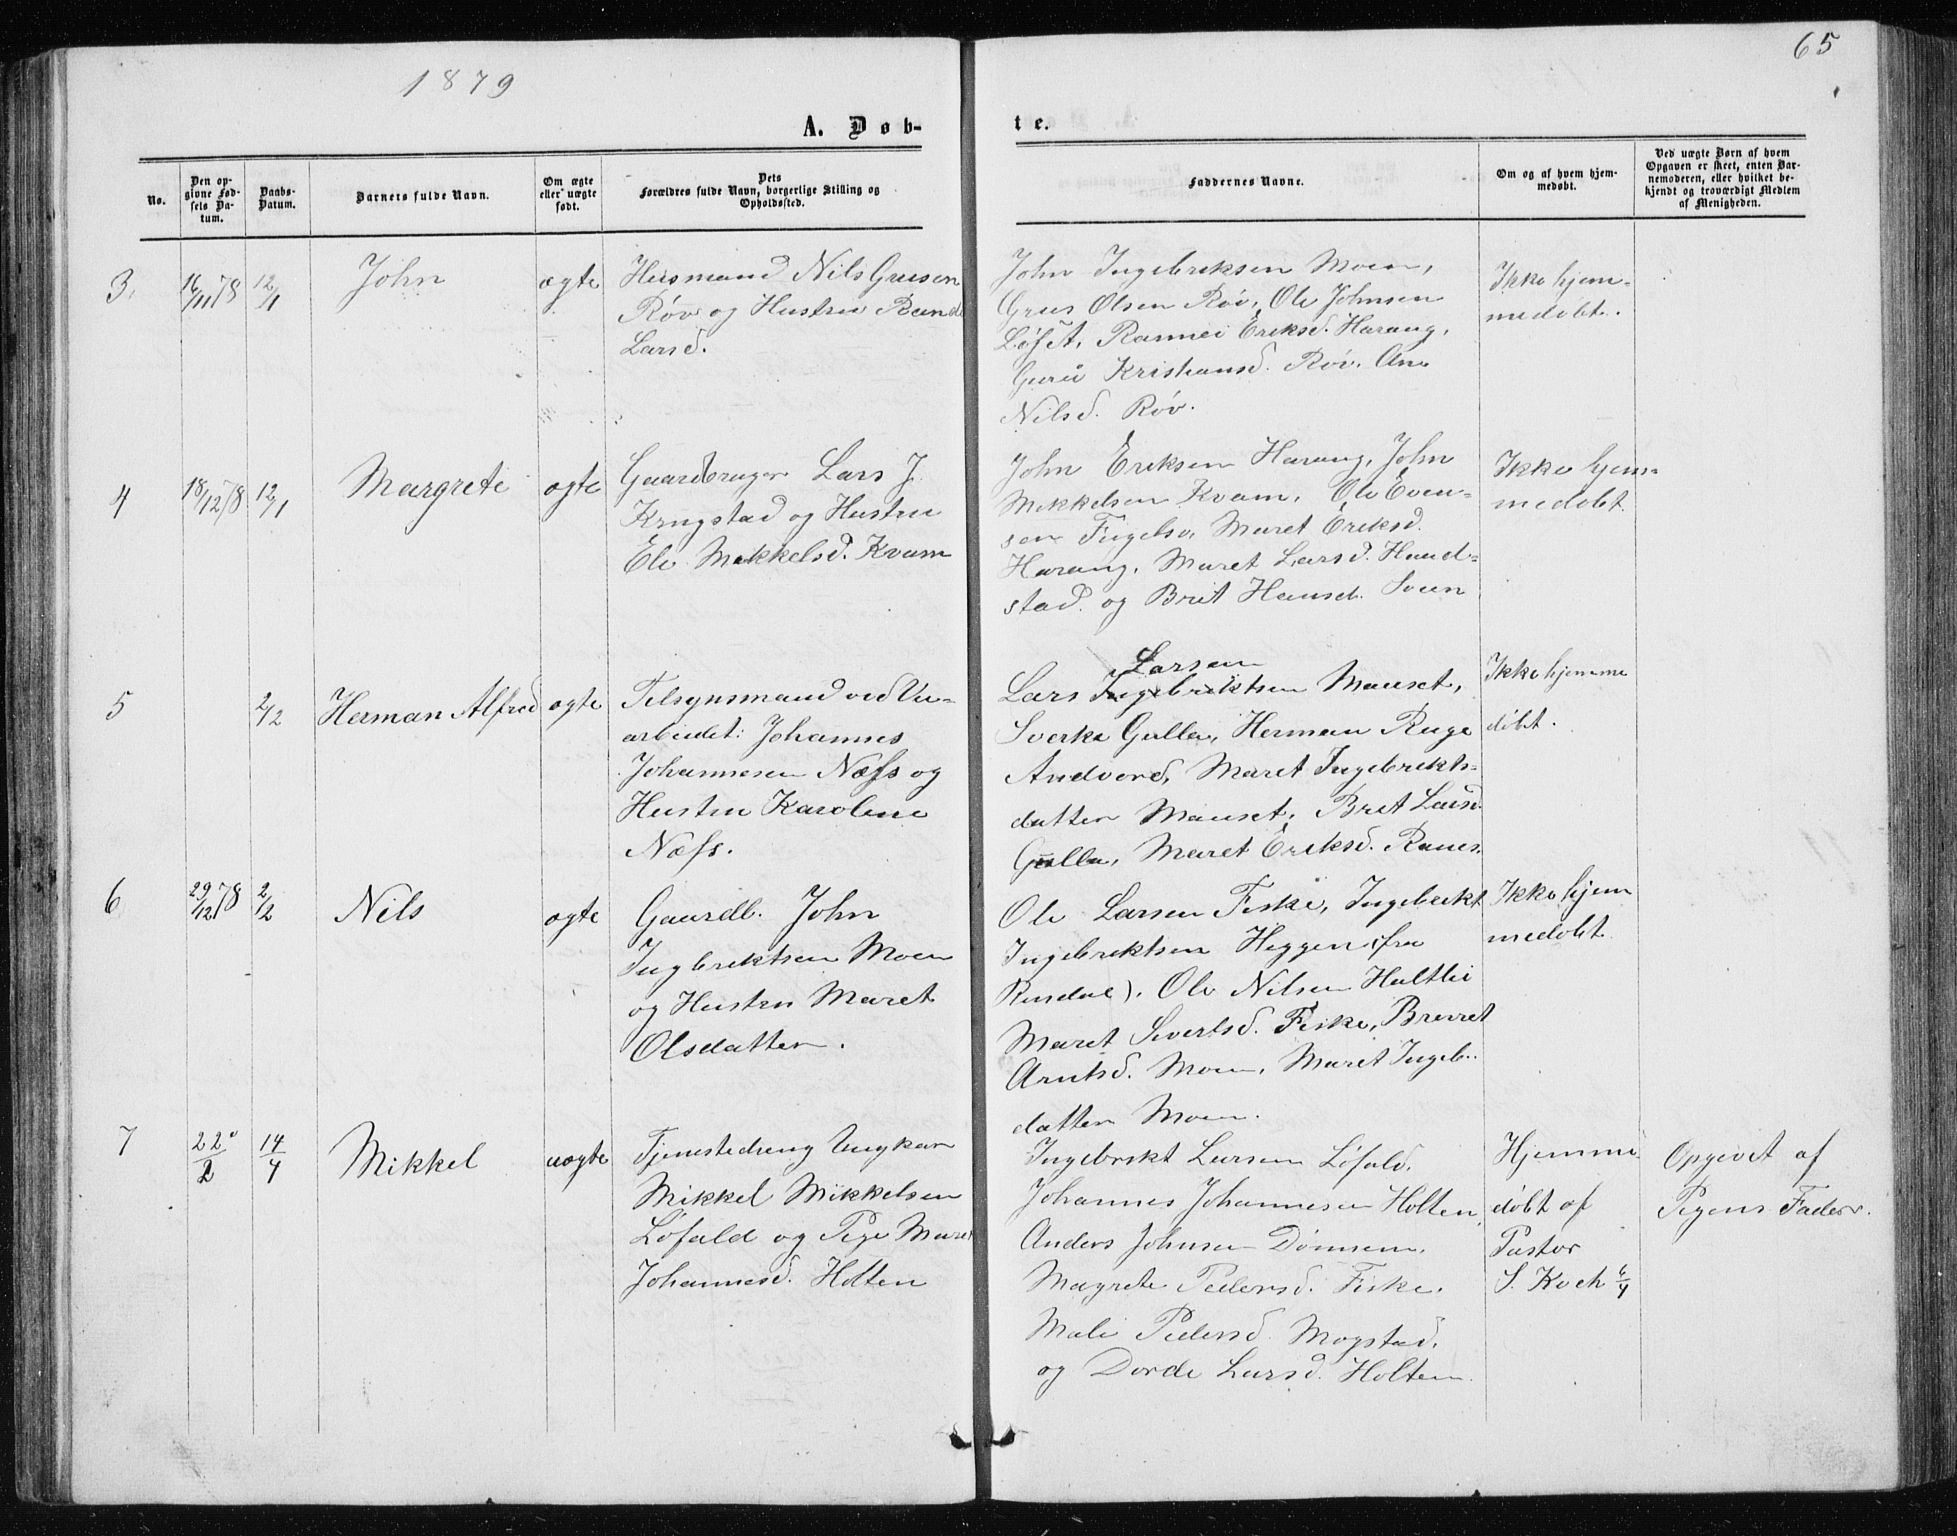 1879
65
A. Døb-
te.
No.
Den op-
givne Fød-
sels Da-
tum.
Daabs-
Datum.
Barnets fulde Navn.
Om ægte
eller uægte
født.
Dets
Forældres fulde Navn, borgerlige Stilling og
Opholdssted.
Faddernes Navne.
Om og af hvem hjem-
medøbt.
Ved uægte Børn af hvem
Opgaven er skeet, enten Bar-
nemoderen, eller hvilket be-
kjendt og troværdigt Medlem
af Menigheden.
3.
16/11 78
12/1
John
ægte
Husmand Nils Grusen
Røv og Hustru
Larsd.
John Ingebriksen Moen,
Grus Olsen Røv, Ole Johnsen
Løfset, Rannei Eriksd. Harang,
Guru Kristiansd. Røv. Ane
Nilsd. Røv.
Ikke hjem-
medøbt.
4
18/12 78
12/1
Margrete
ægte
Gaardbruger Lars J.
Krogstad og Hustru
Eli Mikkelsd. Kvam
John Eriksen Harang, John
Mikkelsen Kvam, Ole Even-
sen Fugelsø, Maret Eriksd.
Harang, Maret Larsd. Haand-
stad og Brit Hansd. Sven
Ikke hjem-
medøbt.
5
2/2
Herman Alfred
ægte
Tilsynsmand ved Vei-
arbeidet: Johannes
Johannesen Næss og
Hustru Karoline
Næss.
Larsen
Lars Ingebriktsen Mauset,
Sverke Gulla, Herman Ruge
Andvord, Maret Ingebrikts-
datter Mauset, Brit Larsd.
Gulla, Maret Eriksd. Ranes.
Ikke hjemme
døbt.
6
29/12 78
2/2
Nils
ægte
Gaardb. John
Ingbriktsen Moen
og Hustru Maret
Olsdatter.
Ole Larsen Fiske, Ingebrikt
Ingebriktsen Heggem (fra
Rindal). Ole Nilsen Hultlii
Maret Sivertsd. Fiske, Brevret
Arntsd. Moen, Maret Ingeb.
datter Moen.
Ikke hjem
medøbt.
7
22/2
14/4
Mikkel
uægte
Tjenestedreng Ungkar
Mikkel Mikkelsen
Løfald og Pige Maret
Johannesd. Holten
Ingebrikt Larsen Løfald,
Johannes Johannesen Holten,
Anders Johnsen Dønnem,
Magrete Pedersd. Fiske,
Mali Pedersd. Mogstad,
og Dorde Larsd. Holten.
Hjemme
døbt af
Pastor
S. Koch 6/4
Opgivet af
Pigens Fader.